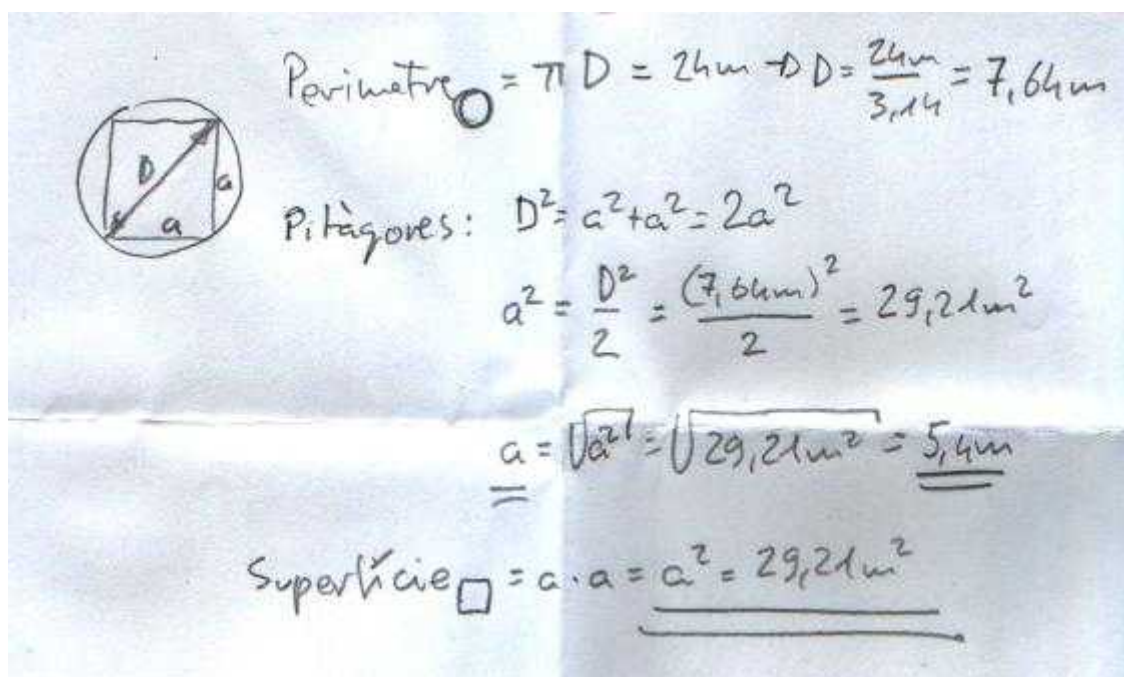 Perimetre○ = π D = 24m → D = 24m/3,14 = 7,64m
D
a
a
Pitàgores: D² = a² + a² = 2a²
a² = D²/2 = (7,64m)²/2 = 29,21m²
a = √a² = √29,21m² = 5,4m
Superfície□ = a · a = a² = 29,21m²